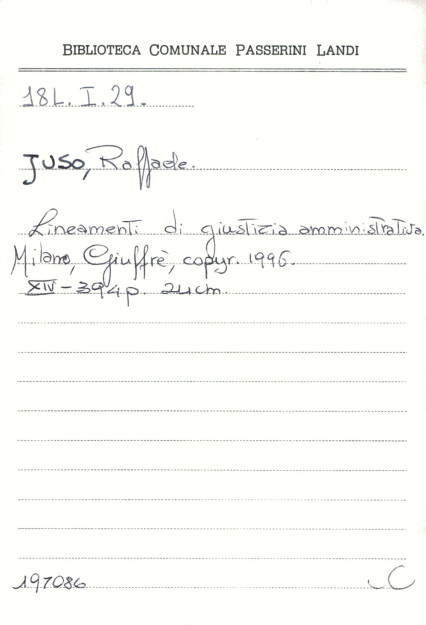 BIBLIOTECA COMUNALE PASSERINI LANDI
18L. I. 29.
JUSO, Raffaele.
Lineamenti di giustizia amministrativa.
Milano, Giuffrè, copyr. 1996.
XIV-394p. 24cm.
197086
C